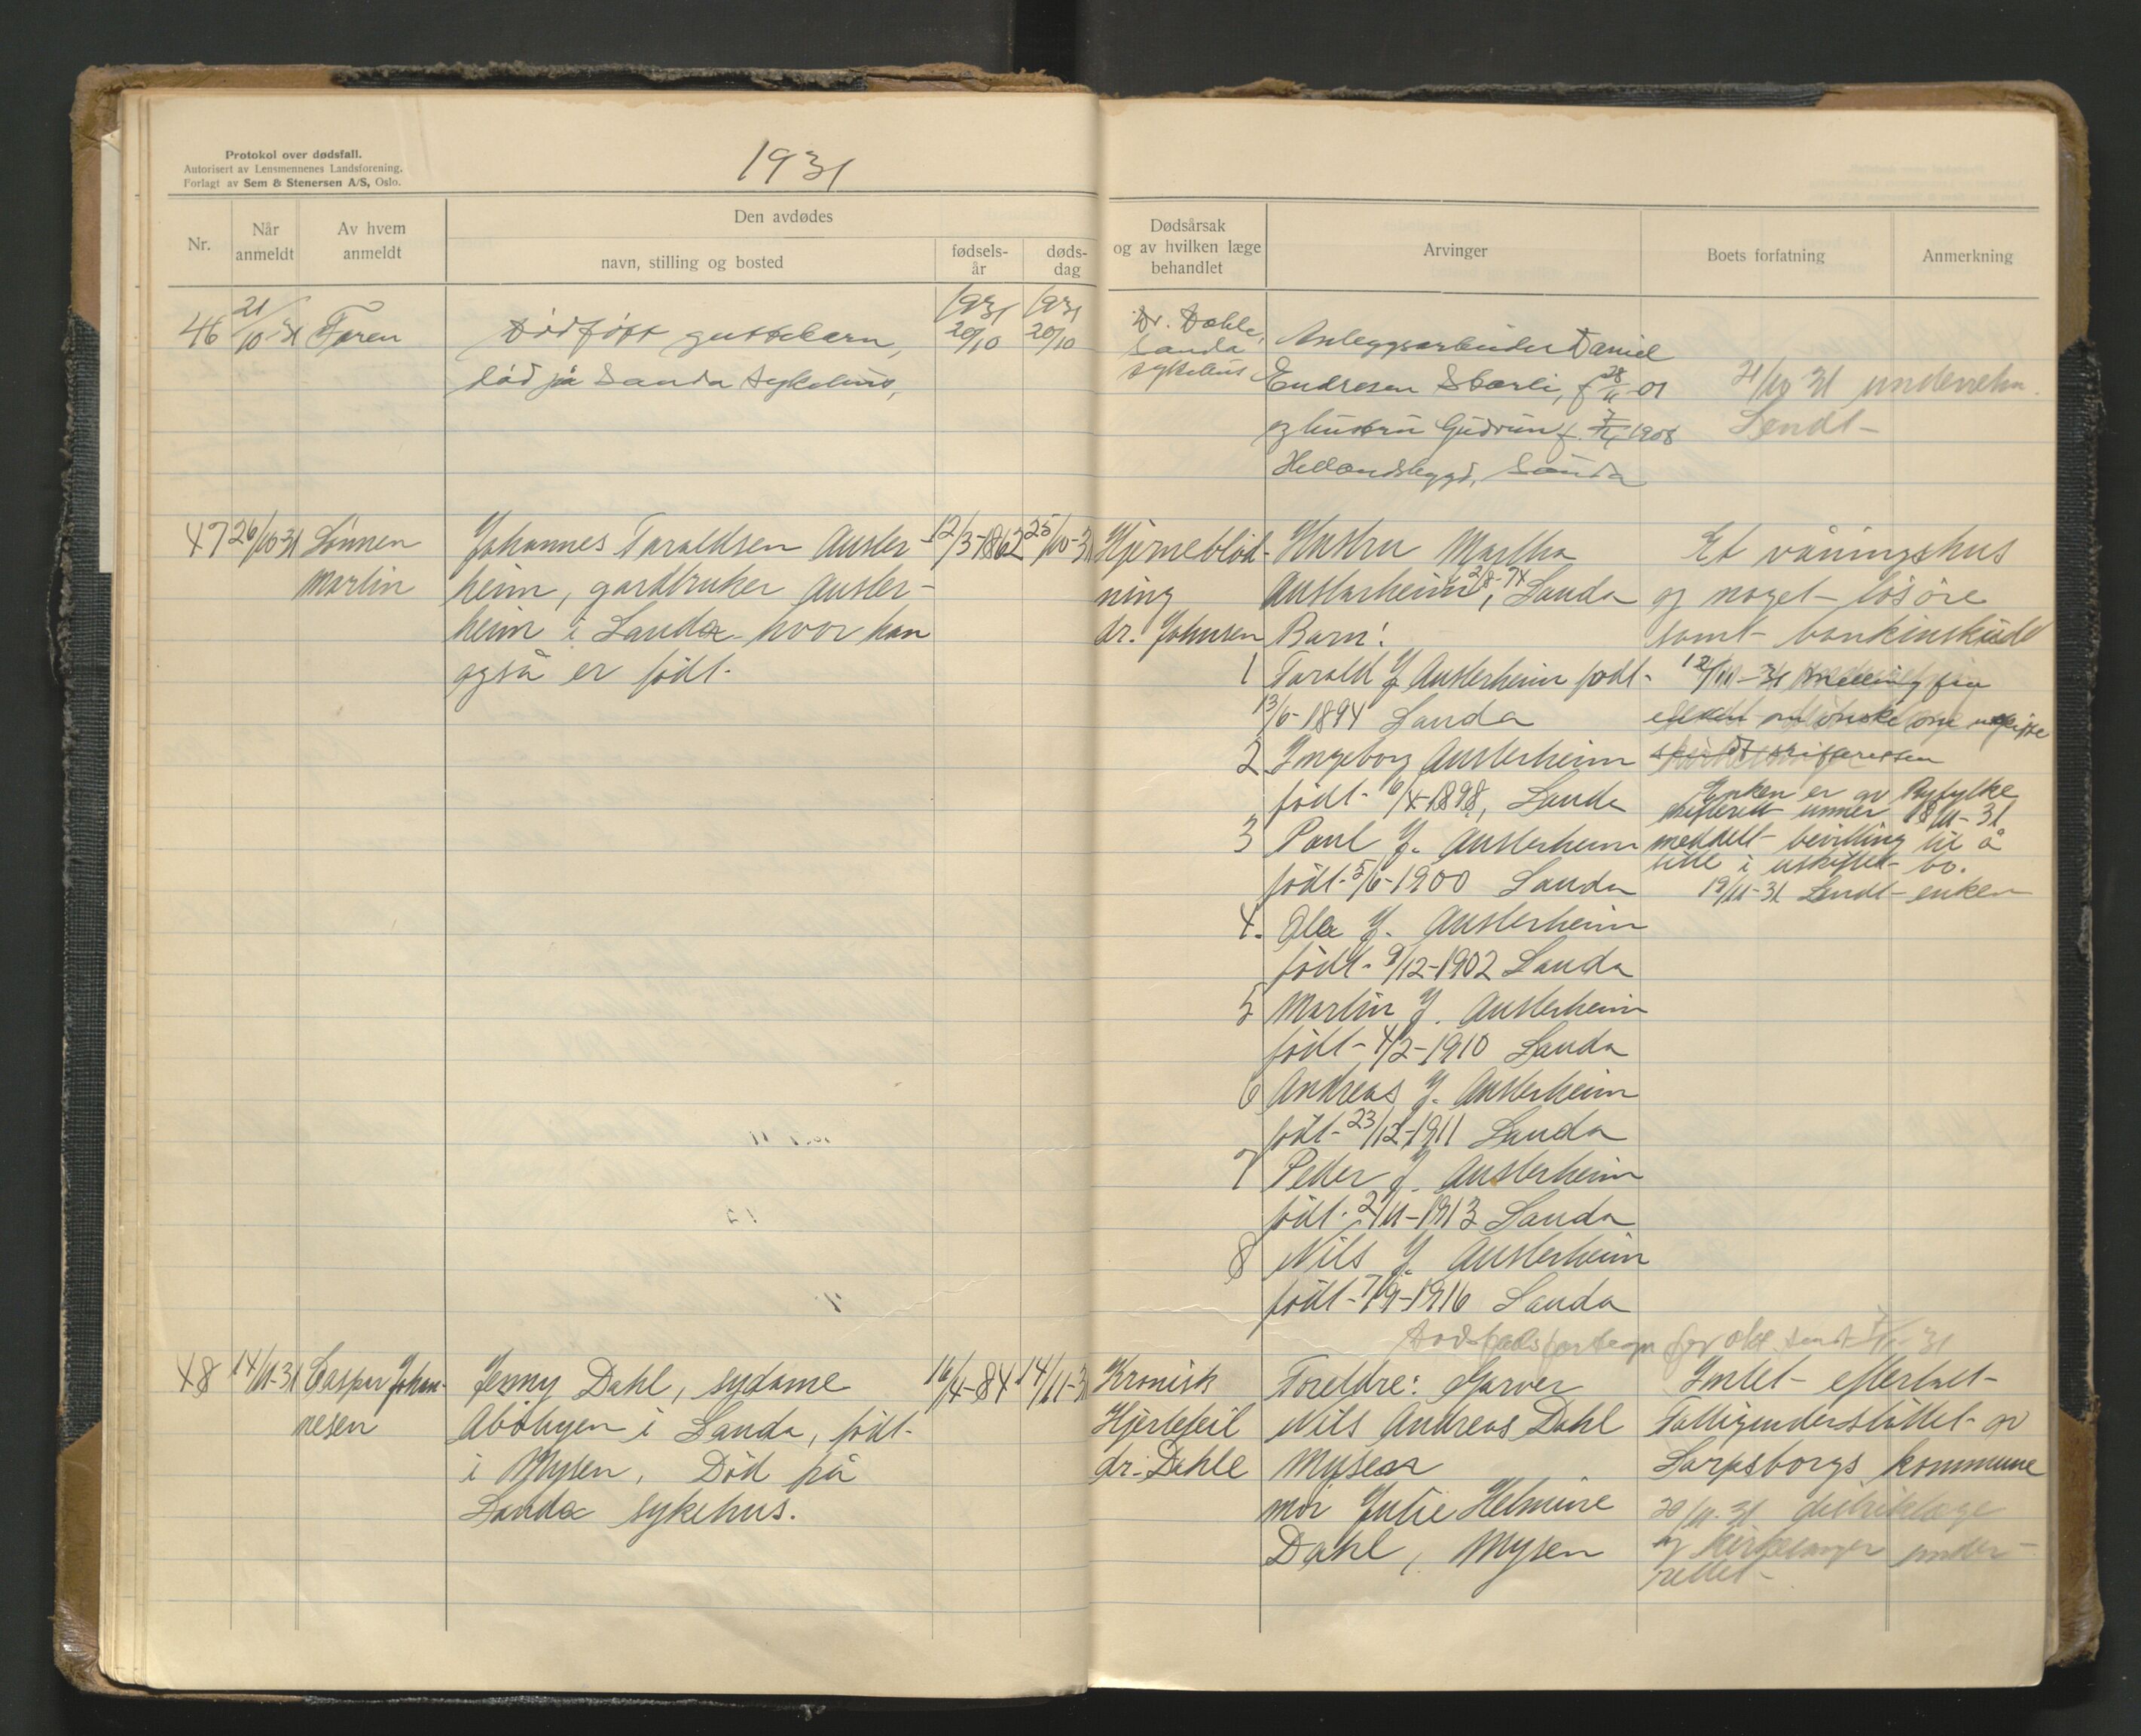 Protokol over dødsfall.
Autorisert av Lensmennenes Landsforening.
Forlagt av Sem & Stenersen A/S, Oslo.
1931
Nr.
Når anmeldt
Av hvem anmeldt
Den avdødes
navn, stilling og bosted
fødsels-år
døds-dag
Dødsårsak og av hvilken læge behandlet
Arvinger
Boets forfatning
Anmerkning
46
21/10-31
Faren
Dødfødt guttebarn,
død på Sauda sykehus,
1931 20/10
1931 20/10
Dr. Dahle,
Sauda
sykehus
Anleggsarbeider Daniel
Endresen Storli, f 28/11-01
og hustru Gudrun f. 1908
Hellandsbygd, Sauda
21/10 31
Sendt
47
26/10-31
Sønnen
Martin
Johannes Taraldsen Auster-
heim, gardbruker Auster-
heim i Sauda hvor han
også er født.
12/3-1862
25/10-31
Hjerneblød-
ning
dr. Johnsen
Hustru Martha
Austarheim 2/8-74, Sauda
Barn:
1 Tarald J Austerheim født
13/6-1894 Sauda
2 Ingeborg Austerheim
født 6/4-1898, Sauda
3 Paul J. Austerheim
født 5/6-1900 Sauda
4. Ola J. Austerheim
født 9/12-1902 Sauda
5 Martin J. Austerheim
født 4/2-1910 Sauda
6 Andreas J. Austerheim
født 23/12-1911 Sauda
7 Petter J. Austerheim
født 2/11-1913 Sauda
8 Nils J. Austerheim
født 7/9-1916 Sauda
Et våningshus
og noget løsøre
samt bankinskudd
12/11-31 melding fra
enken om ønske om uskifte
sendt skifteretten
Enken er av Ryfylke
skifterett under 18/11-31
meddelt bevilling til å
sitte i uskiftet bo.
19/11-31 Sendt enken
48
14/11-31
Caspar Johan-
nesen
Jenny Dahl, sydame
Åbøbyen i Sauda, født
i Mysen. Død på
Sauda sykehus.
16/4-84
14/11-31
Kronisk
Hjertefeil
dr. Dahle
Foreldre: Garver
Nils Andreas Dahl
Mysen
mor Julie Helmine
Dahl, Mysen
Intet efterlatt
Fattigunderstøttet av
Sarpsborgs kommune
20/11-31 distriktslæge
og kirkesanger under-
rettet